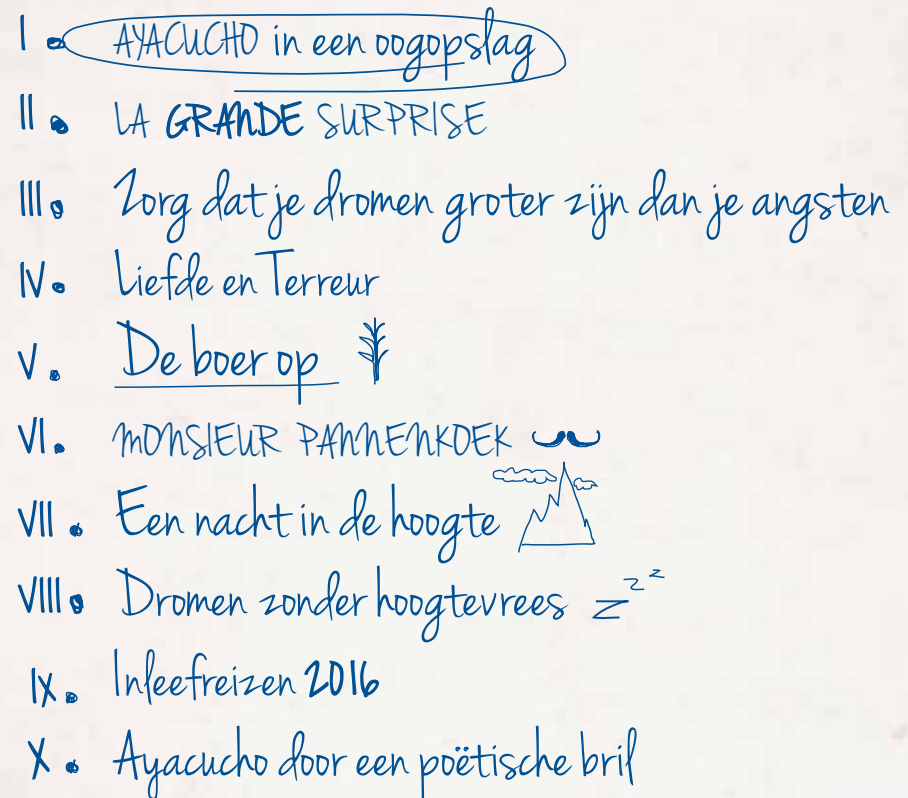 I. AYACUCHO in een oogopslag
II. LA GRANDE SURPRISE
III. Zorg dat je dromen groter zijn dan je angsten
IV. Liefde en Terreur
V. De boer op
VI. MONSIEUR PANNENKOEK
VII. Een nacht in de hoogte
VIII. Dromen zonder hoogtevrees zzz
IX. Inleefreizen 2016
X. Ayacucho door een poëtische bril